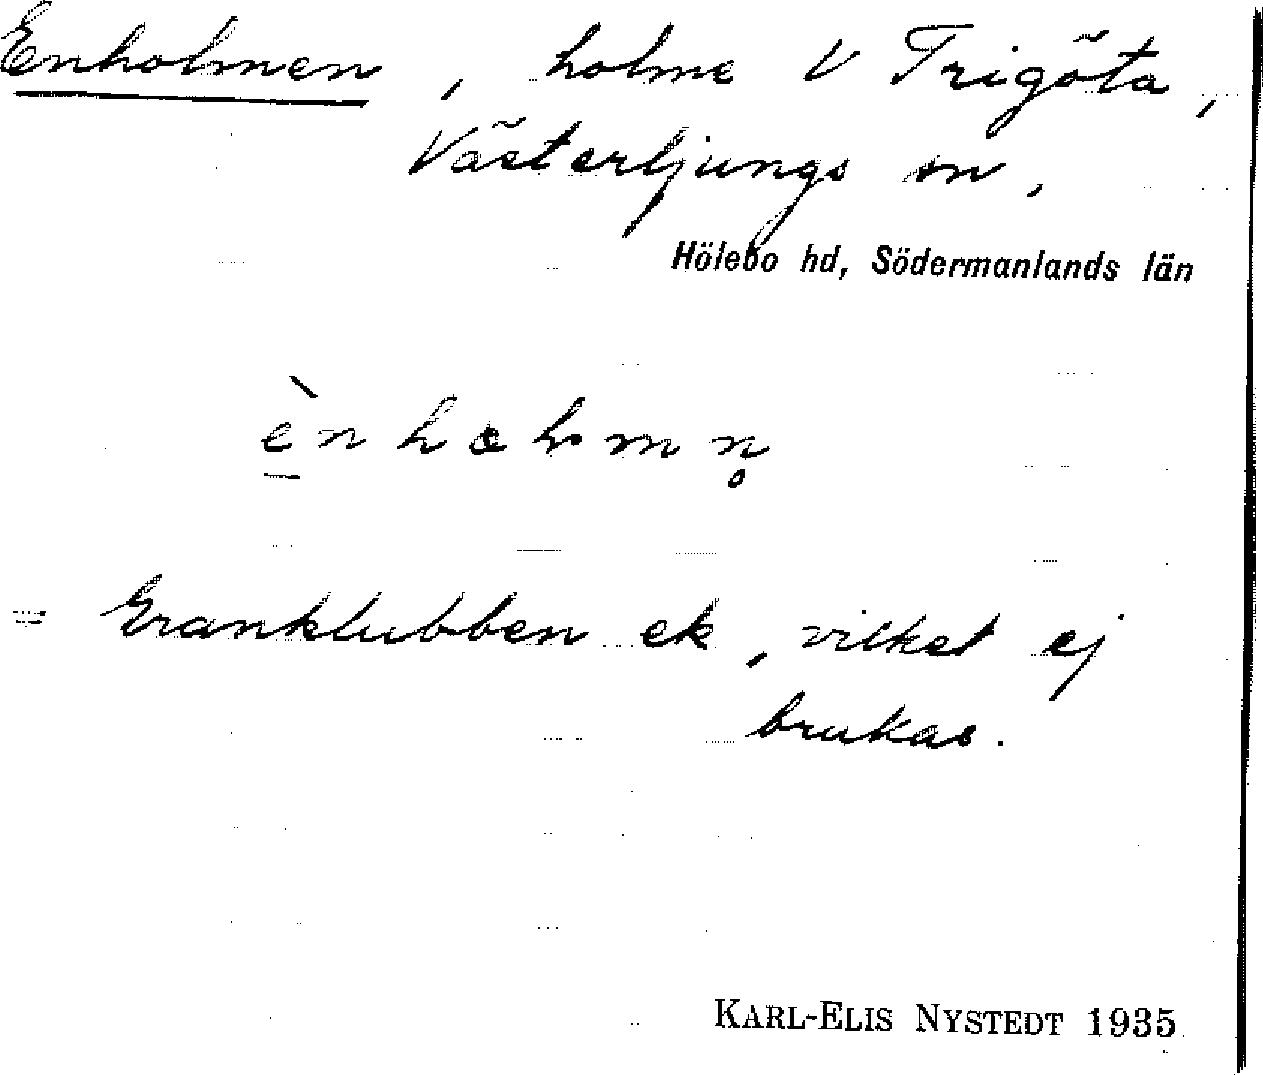 Enholmen, holme V Trigöta,
Västerljungs sn,
Hölebo hd, Södermanlands län
= Granklubben ek, vilket ej
brukas.
KARL-ELIS NYSTEDT 1935